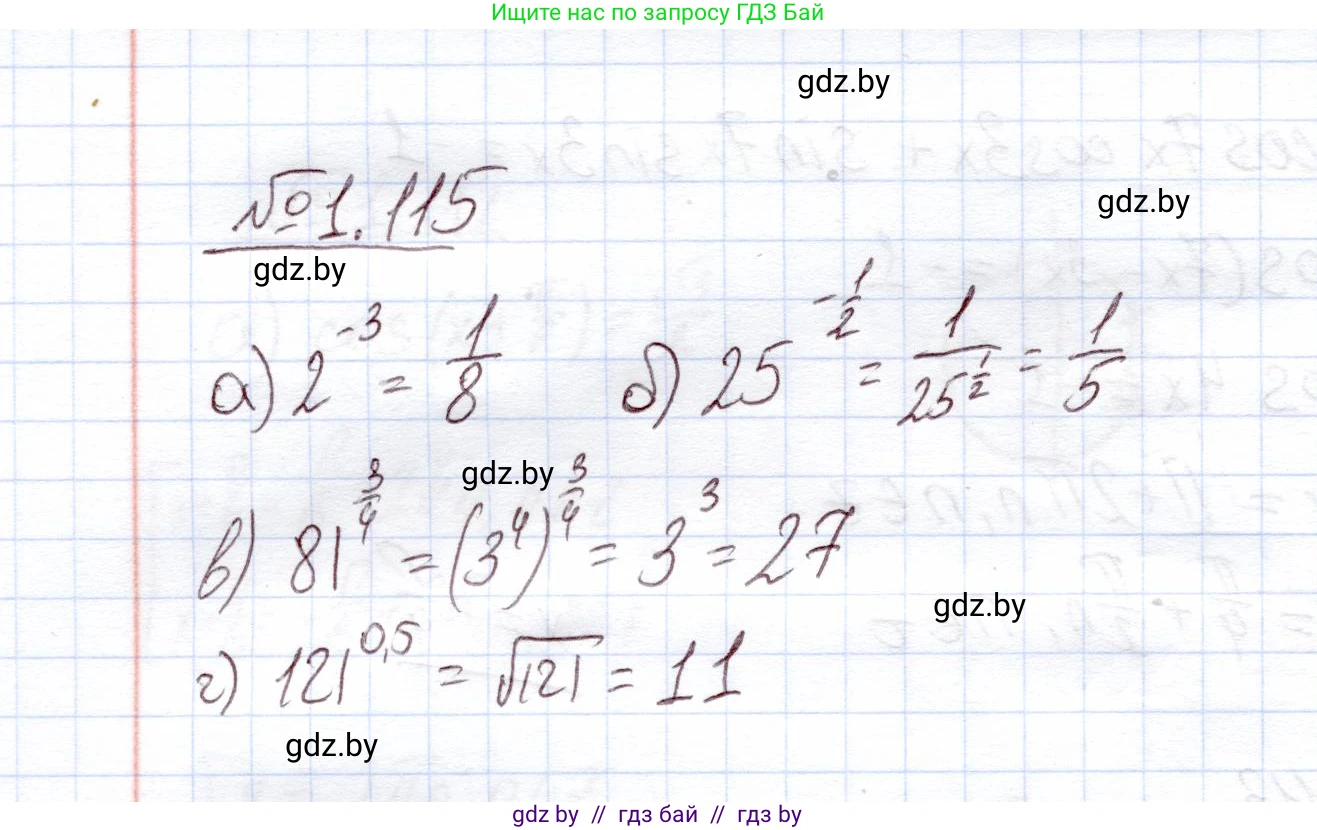 Ищите нас по запросу ГДЗ Бай
gdz.by
№1.115
gdz.by
gdz.by
а) 2^{-3} = \frac{1}{8} б) 25^{-\frac{1}{2}} = \frac{1}{25^{\frac{1}{2}}} = \frac{1}{5}
gdz.by
в) 81^{\frac{3}{4}} = (3^4)^{\frac{3}{4}} = 3^3 = 27
gdz.by
г) 121^{0,5} = \sqrt{121} = 11
gdz.by
gdz by // гдз бай // гдз by